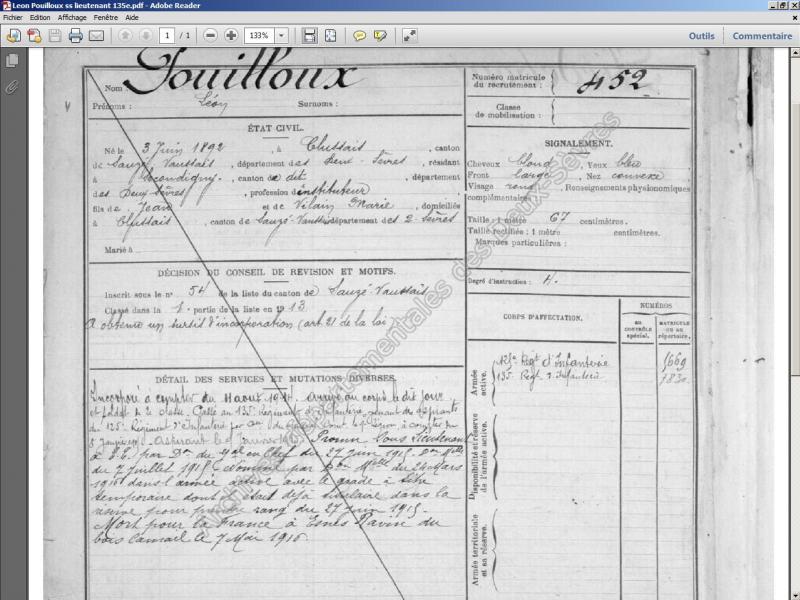 Leon Pouilloux ss lieutenant 135e.pdf - Adobe Reader
Fichier Edition Affichage Fenêtre Aide
1 / 1 133% Outils Commentaire
Nom Pouilloux
Prénoms : Léon Surnoms :
Numéro matricule du recrutement : 452
Classe de mobilisation :
ÉTAT CIVIL.
Né le 3 Juin 1892, à Clussais, canton
de Sauzé Vaussais, département des Deux-Sèvres, résidant
à Secondigny, canton de dit, département
des Deux Sèvres, profession d'instituteur
fils de Jean et de Vilain Marie, domiciliés
à Clussais, canton de Sauzé-Vaussais département des 2 Sèvres
Marié à
SIGNALEMENT.
Cheveux blond Yeux bleu
Front large Nez convexe
Visage rond Renseignements physionomiques
complémentaires
Taille : 1 mètre 67 centimètres.
Taille rectifiée : 1 mètre centimètres.
Marques particulières :
Degré d'instruction : 4.
DÉCISION DU CONSEIL DE REVISION ET MOTIFS.
Inscrit sous le n° 54 de la liste du canton de Sauzé-Vaussais
Classé dans la 1e partie de la liste en 1913
A obtenu un sursis d'incorporation (art. 21 de la loi)
CORPS D'AFFECTATION.
NUMÉROS
AU CONTRÔLE SPÉCIAL.
MATRICULE OU AU RÉPERTOIRE.
Armée active.
125e Régt d'Infanterie 1669
135e Régt d'Infanterie 1830
Disponibilité et réserve de l'armée active.
Armée territoriale et sa réserve.
DÉTAIL DES SERVICES ET MUTATIONS DIVERSES.
Incorporé à compter du 11 aout 1914. Arrivé au corps le dit jour
et soldat de 2e classe. Passé au 135e Régiment d'Infanterie, venant des
du 125e Régiment d'Infanterie par
5 janvier 1915. Aspirant le janvier 1915. Promu Sous Lieutenant
à T.T. par Don du Gal en Chef du 27 juin 1915. Don Melle
du 7 juillet 1915. Nommé par Don Melle du 24 Mars
1916 dans l'armée active avec le grade à titre
temporaire dont il était déjà titulaire dans la
réserve pour prendre rang du 27 juin 1915.
Mort pour la France à Esnes Ravin du
bois Camard le 7 Mai 1916.
Archives départementales des Deux-Sèvres